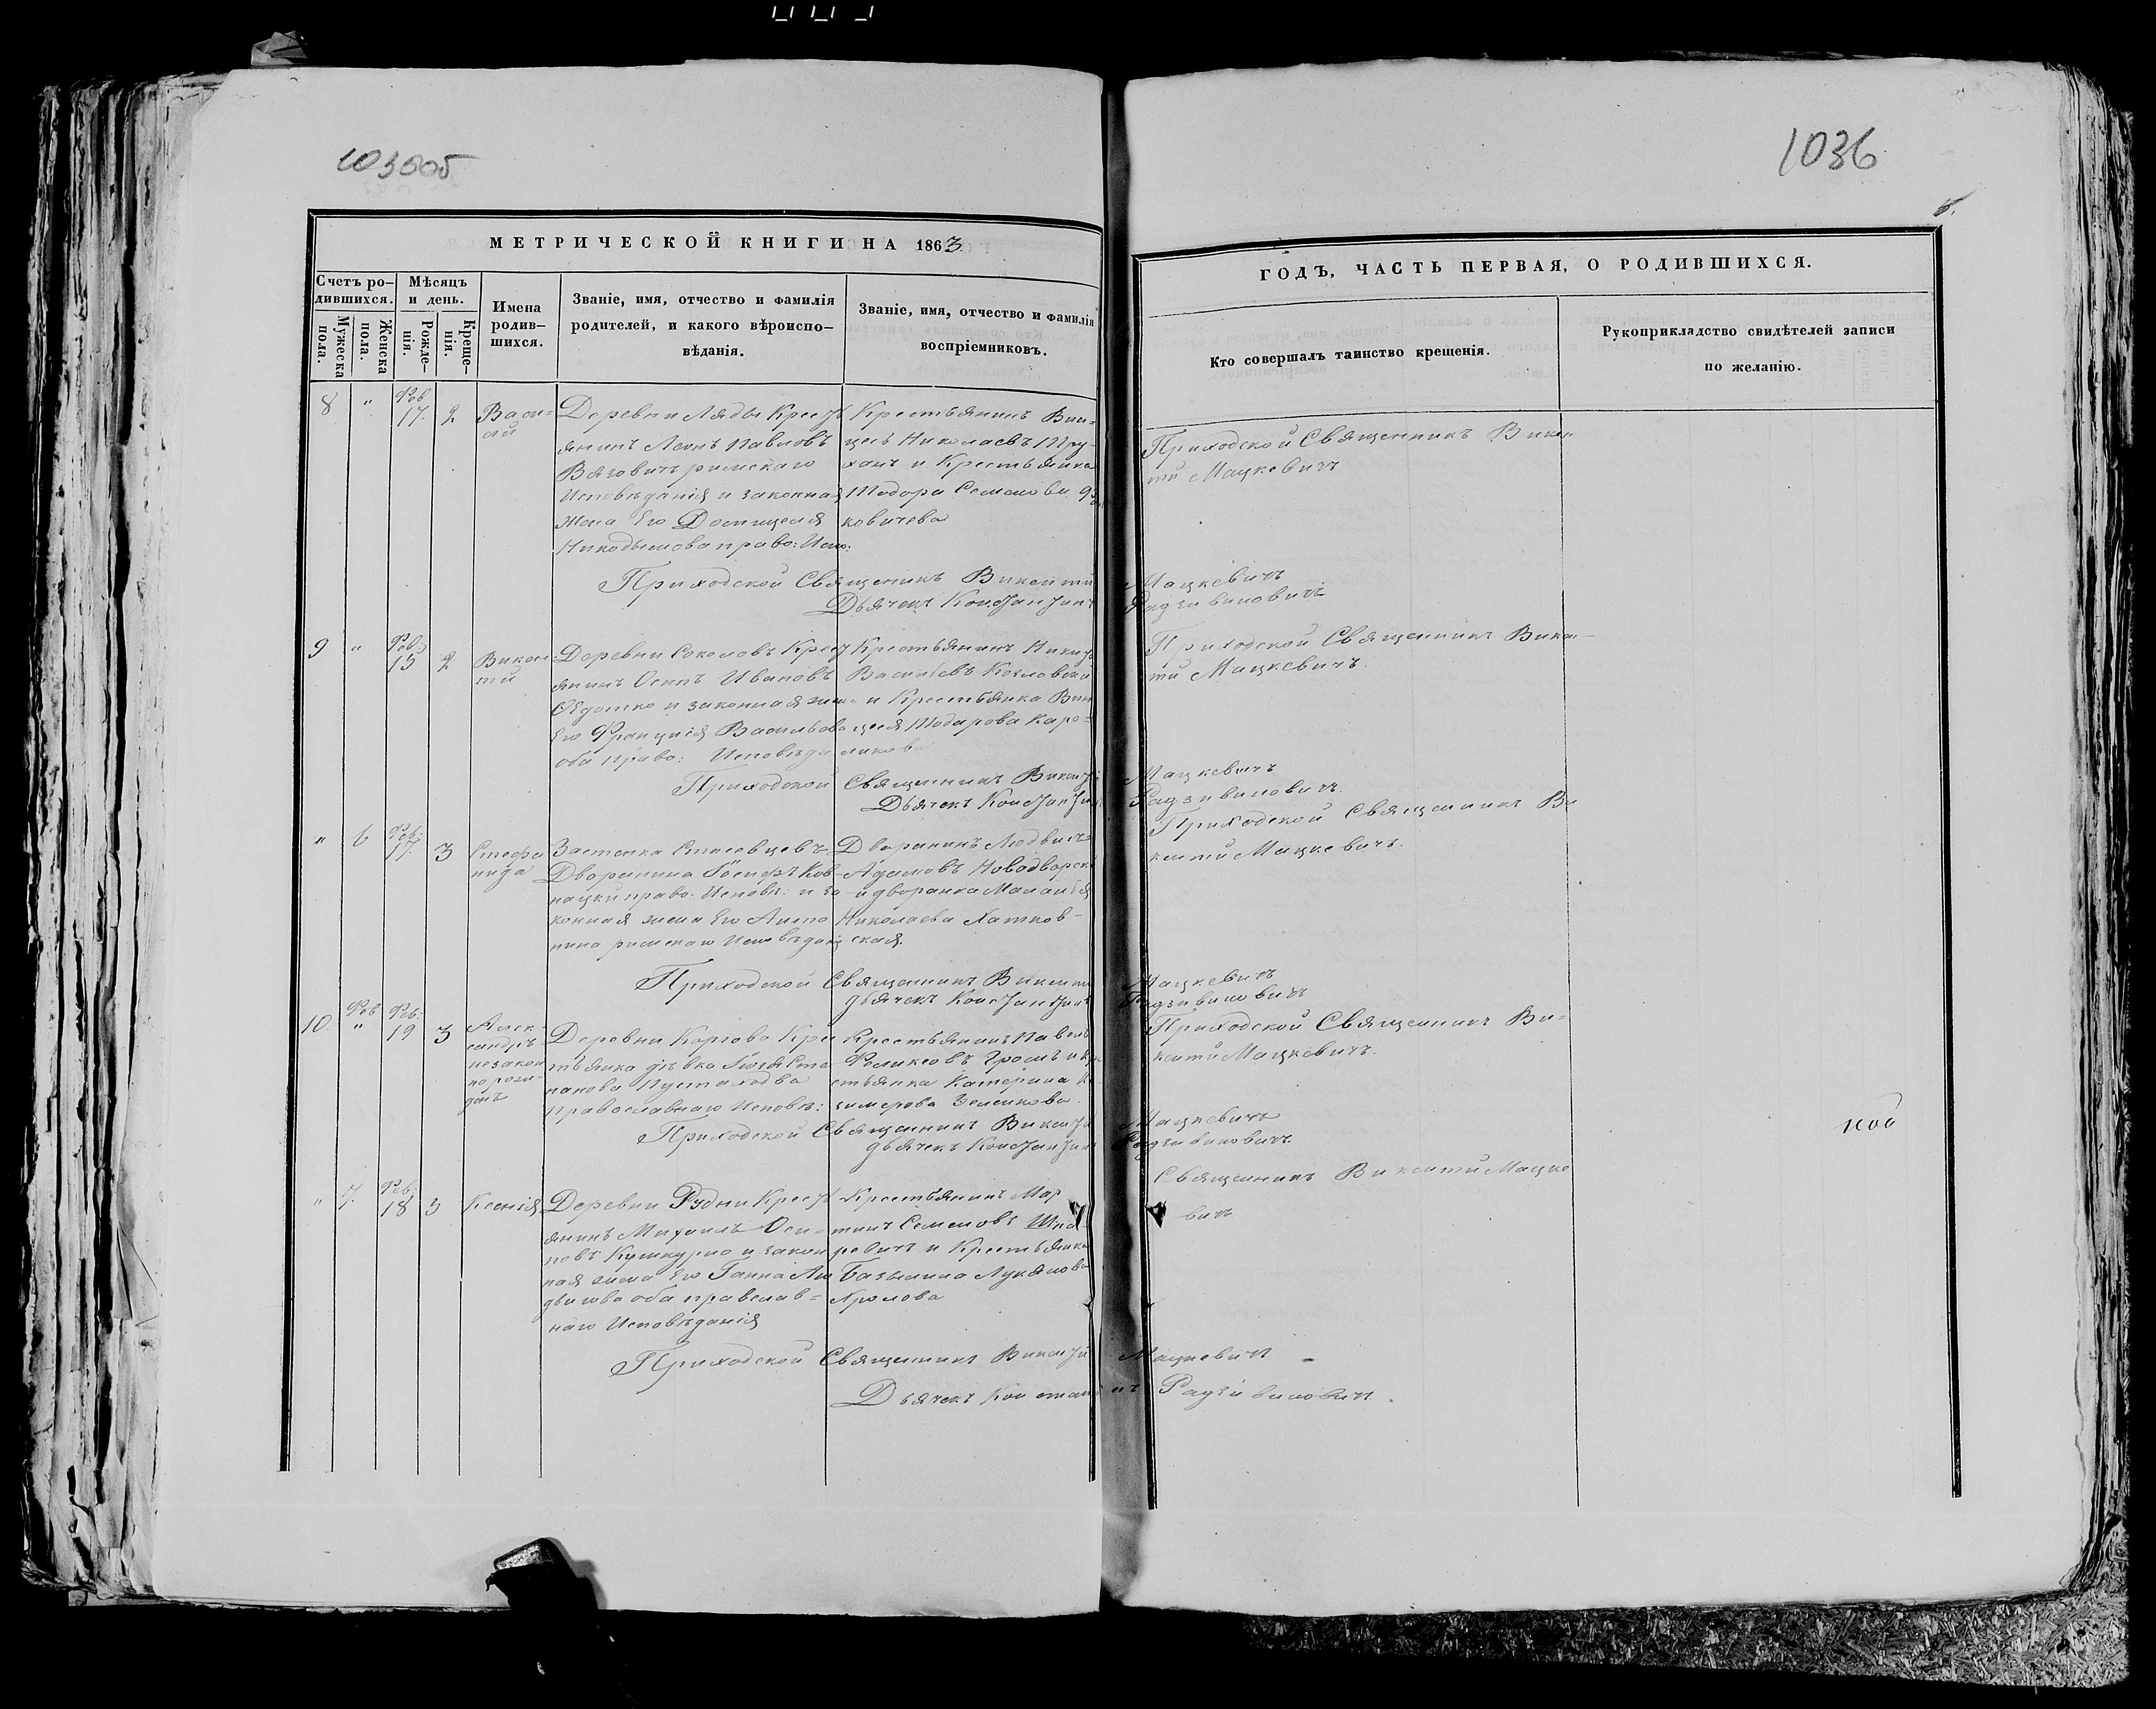 103505
1036
МЕТРИЧЕСКОЙ КНИГИ НА 1863
ГОДЪ, ЧАСТЬ ПЕРВАЯ, О РОДИВШИХСЯ.
Счетъ ро-
дившихся.
Мѣсяцъ
и день.
Мужеска
пола.
Женска
пола.
Рожде-
нія.
Креще-
нія.
Имена
родив-
шихся.
Званіе, имя, отчество и фамилія
родителей, и какого вѣроиспо-
вѣданія.
Званіе, имя, отчество и фамилія
воспріемниковъ.
Кто совершалъ таинство крещенія.
Рукоприкладство свидѣтелей записи
по желанію.
8 " Фев 17. 2 Васи-
лій
Деревни Ляды Крест
янинъ Леонъ Павловъ
Вязовичъ римскаго
Исповѣданія и законная
жена Его Домицеля
Никодымова право: Испо:
Крестьянинъ Вин-
цесь Николаевъ Тру-
ханъ и Крестьянка
Тодора Семенова
ковичева
Приходской Священникъ Викен
тій Мацкевичъ
Приходской Священикъ Викентій Мацкевичъ
Дьячекъ Константинъ Радзивиновичъ
9 " Фев: 15 2 Викен-
тій
Деревни Соколовъ Крест
янинъ Осипъ Ивановъ
и законная жена
Его Францыія Васильева
оба право: Исповѣда
Крестьянинъ Никита
Васильевъ Козловскій
и Крестьянка Вин
цеся Тодарова Каро-
ликова
Приходской Священникъ Викен-
тій Мацкевичъ.
Приходской Священникъ Викентій Мацкевичъ
Дьячекъ Константинъ Радзивиновичъ.
" 6 Фев: 17. 3 Стефа
нида
Застенка Стасевцевъ
Дворянина Іосифъ Ков-
нацкій право: Исповѣ: и за
конная жена Его Анто
нина римскаго Исповѣдані
Дворянинъ Людвигъ
Адамовъ Новодворскі
и дворянка Маланья
Николаева Хатков-
ская.
Приходской Священникъ Ви
кентій Мацкевичъ.
Приходской Священникъ Викентій Мацкевичъ
дьячекъ Константинъ Радзивиновичъ
10. Фев " Фев: 19 3 Алек-
сандръ
незакон
но рож-
денъ
Деревни Каргова Крес
тьянка дѣвка Юзія Сте
панова Пустоходва
Православнаго Исповѣ:
Крестьянинъ Павелъ
Феликсовъ Громъ и Кре
стьянка Катерина Ка-
зимерова Зеленкова.
Приходской Священникъ Ви-
кентій Мацкевичъ.
Приходской Священникъ Викентій Мацкевичъ
дьячекъ Константинъ Радзивиновичъ.
" 7. Фев: 18 3 Ксенія
Деревни Рудни Крест
янинъ Михаилъ Оси-
повъ Кушкурно и закон
ная жена Его Ганна Лю
двигова оба православ-
наго Исповѣданія
Крестьянинъ Мар
тинъ Семеновъ
ревичъ и Крестьянка
Базылина Лукянова
Кролова
Священникъ Викентій Мацке
вичъ
Приходской Священникъ Викентій Мацкевичъ
Дьячекъ Константинъ Радзивиновичъ.